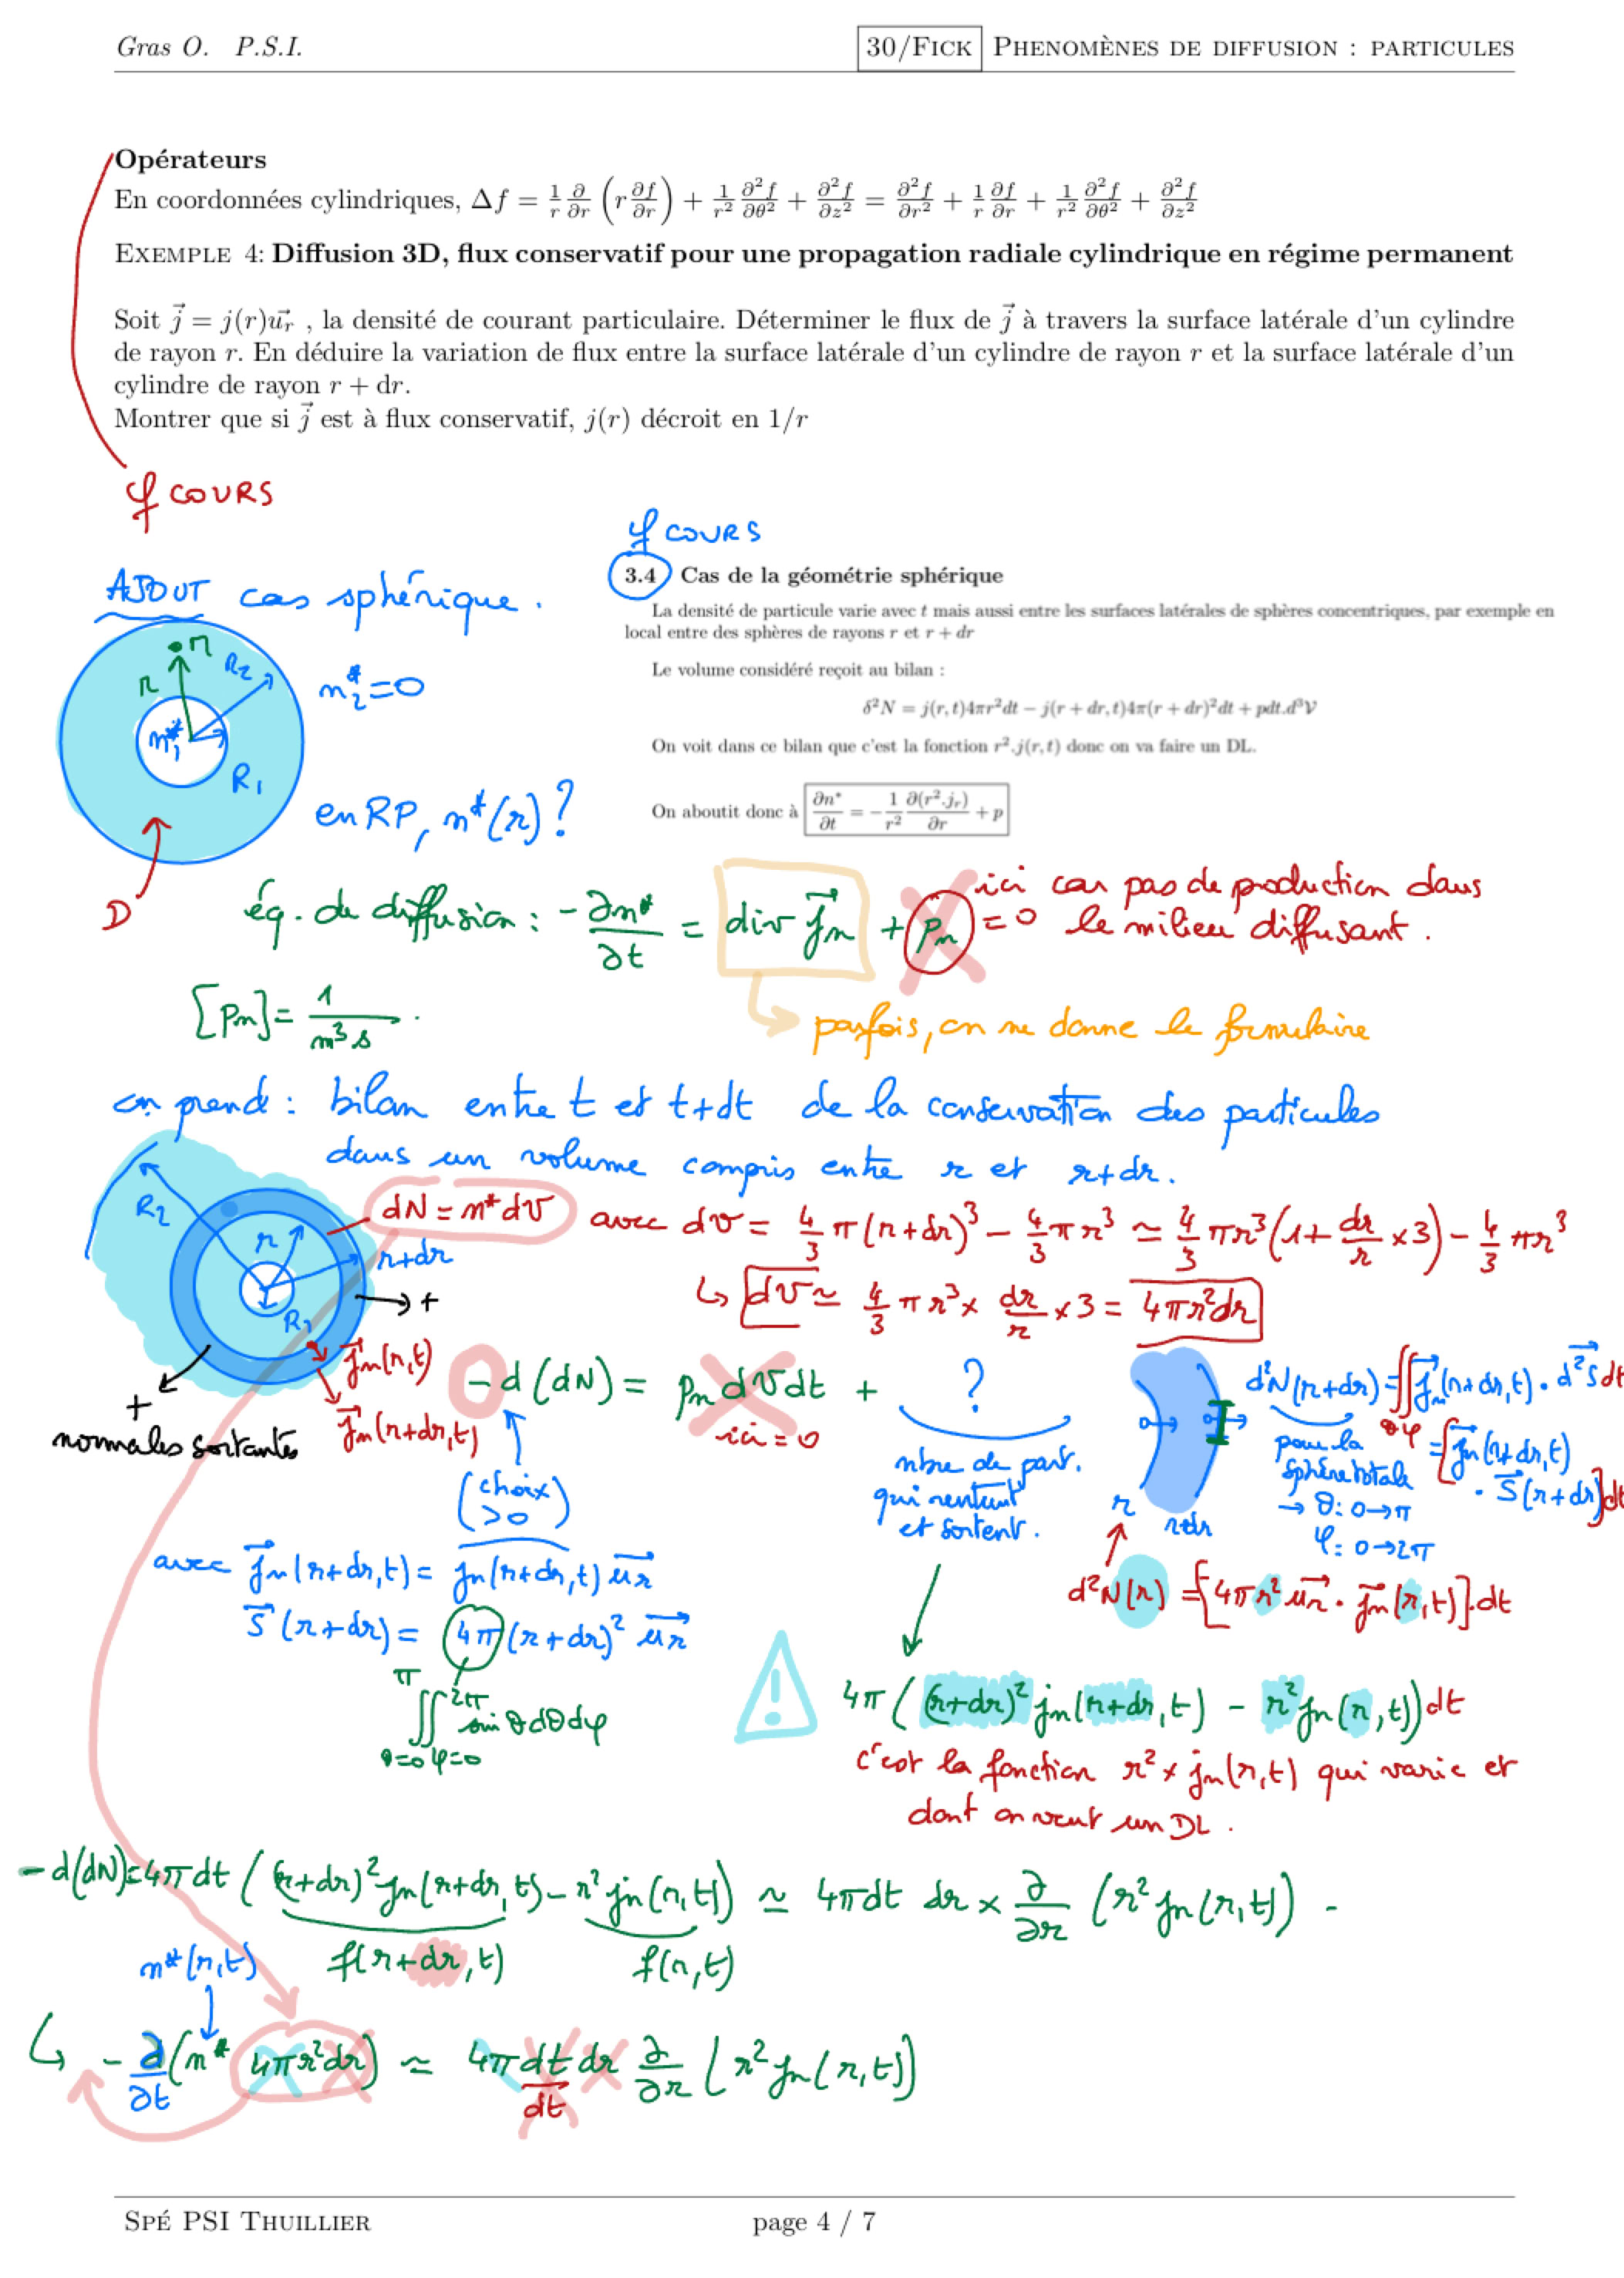 Gras O. P.S.I. 30/Fick Phenomènes de diffusion : particules
Opérateurs
En coordonnées cylindriques, Δf = 1/r ∂/∂r (r ∂f/∂r) + 1/r² ∂²f/∂θ² + ∂²f/∂z² = ∂²f/∂r² + 1/r ∂f/∂r + 1/r² ∂²f/∂θ² + ∂²f/∂z²
Exemple 4: Diffusion 3D, flux conservatif pour une propagation radiale cylindrique en régime permanent
Soit j⃗ = j(r)u⃗r , la densité de courant particulaire. Déterminer le flux de j⃗ à travers la surface latérale d'un cylindre
de rayon r. En déduire la variation de flux entre la surface latérale d'un cylindre de rayon r et la surface latérale d'un
cylindre de rayon r + dr.
Montrer que si j⃗ est à flux conservatif, j(r) décroit en 1/r
cf COURS
cf COURS
3.4 Cas de la géométrie sphérique
La densité de particule varie avec t mais aussi entre les surfaces latérales de sphères concentriques, par exemple en
local entre des sphères de rayons r et r + dr
Le volume considéré reçoit au bilan :
δ²N = j(r, t)4πr²dt − j(r + dr, t)4π(r + dr)²dt + pdt.d³V
On voit dans ce bilan que c'est la fonction r².j(r, t) donc on va faire un DL.
On aboutit donc à ∂n*/∂t = − 1/r² ∂(r².jr)/∂r + p
AJOUT cas sphérique.
r R2
n2* = 0
n1* R1
en RP, n*(r) ?
D
éq. de diffusion : −∂n*/∂t = div j⃗n + pn = 0 ici car pas de production dans
le milieu diffusant.
[pn] = 1/(m³ s)
parfois, on me donne le formulaire
on prend : bilan entre t et t+dt de la conservation des particules
dans un volume compris entre r et r+dr.
R2 r r+dr R1 +
dN = n* dV avec dV = 4/3 π (r+dr)³ − 4/3 π r³ ≃ 4/3 πr³(1 + dr/r ×3) − 4/3 πr³
↳ dV ≃ 4/3 π r³ × dr/r × 3 = 4πr²dr
j⃗n(r,t)
j⃗n(r+dr,t)
+
normales sortantes
−d(dN) = pn dV dt + ?
ici = 0
(choix > 0)
nbre de part.
qui rentrent
et sortent.
r r+dr
d²N(r+dr) = ∬θφ j⃗n(r+dr,t) · d²S⃗ dt
= [j⃗n(r+dr,t) · S⃗(r+dr)]dt
pour la
sphère totale
→ θ: 0→π
φ: 0→2π
d²N(r) = [4πr² u⃗r · j⃗n(r,t)].dt
avec j⃗n(r+dr,t) = jn(r+dr,t) u⃗r
S⃗(r+dr) = 4π (r+dr)² u⃗r
∬ θ=0 π φ=0 2π sin θ dθ dφ
!
4π ((r+dr)² jn(r+dr,t) − r² jn(r,t)) dt
c'est la fonction r² × jn(r,t) qui varie et
dont on veut un DL.
−d(dN) = 4π dt ((r+dr)² jn(r+dr,t) − r² jn(r,t)) ≃ 4π dt dr × ∂/∂r (r² jn(r,t))
n*(r,t) f(r+dr,t) f(r,t)
↳ −∂/∂t (n* 4πr²dr) ≃ 4π dt/dt dr ∂/∂r (r² jn(r,t))
Spé PSI Thuillier page 4 / 7